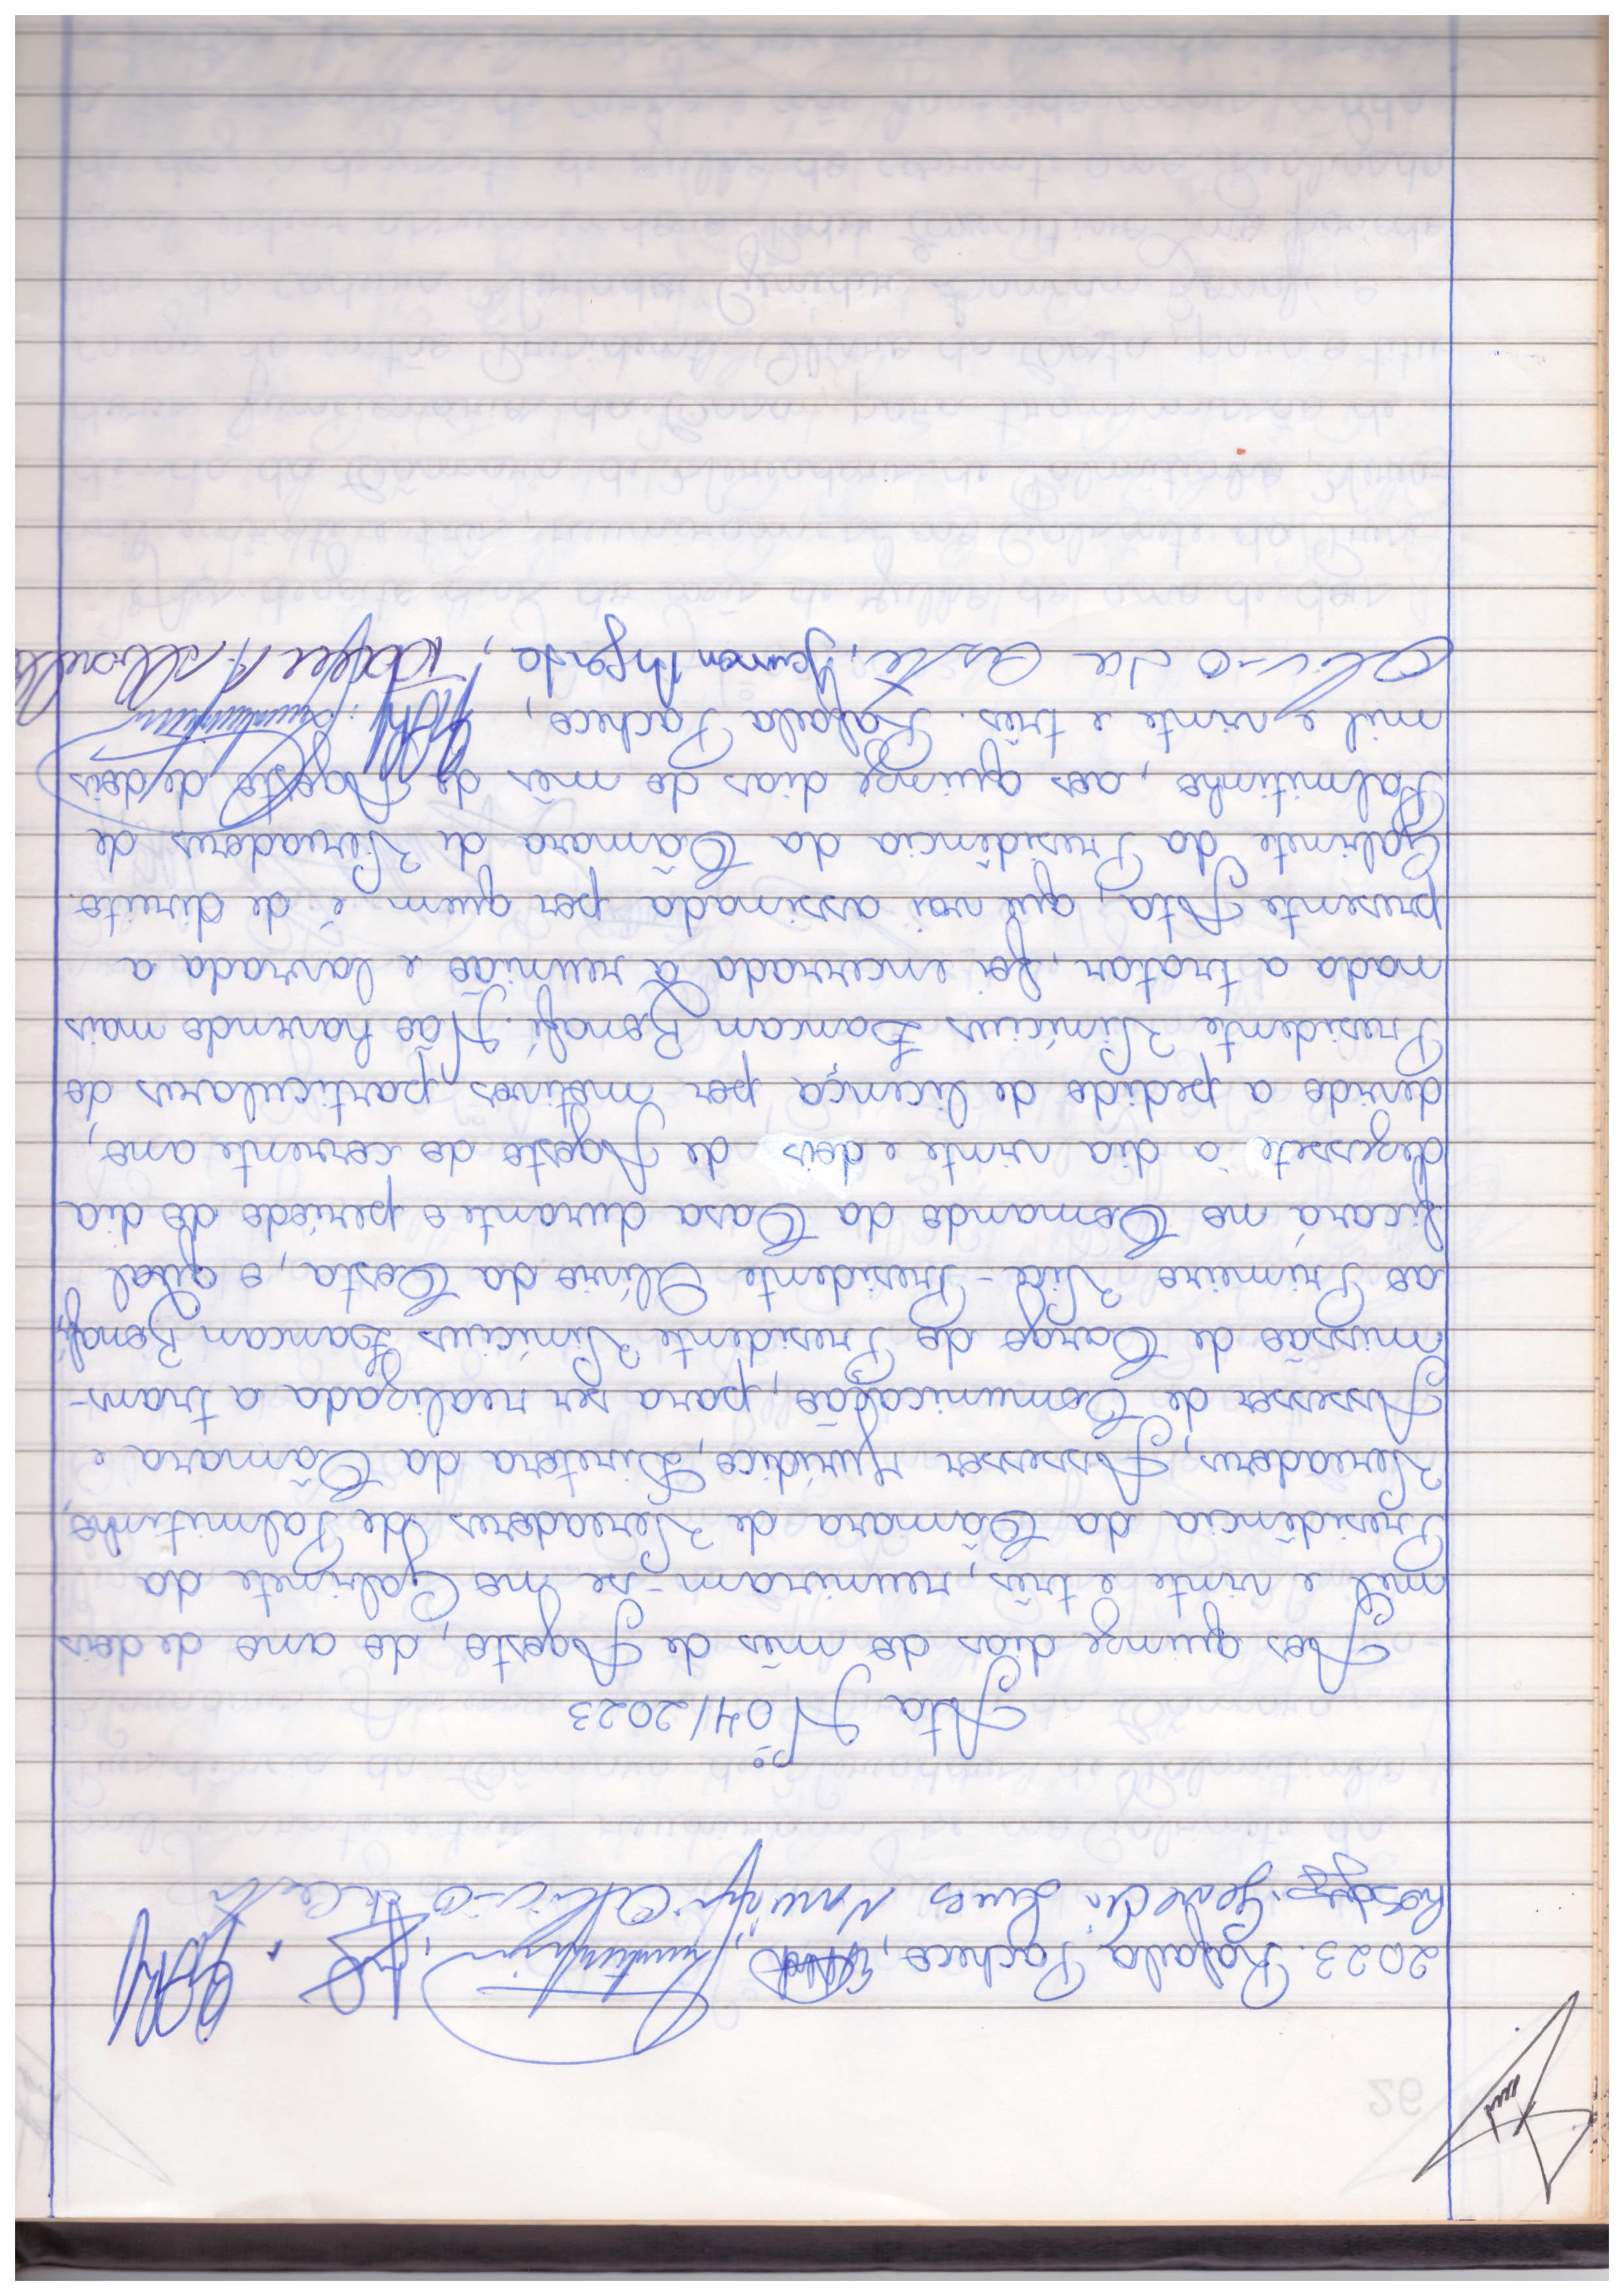 2023. Rafaela Pacheco,
Ata Nº 04/2023
Aos quinze dias do mês de Agosto, do ano de dois
mil e vinte e três, reuniram-se no Gabinete da
Presidência da Câmara de Vereadores de Palmitinho,
Vereadores, Assessor Jurídico, Diretora da Câmara e
Assessor de Comunicação, para ser realizada a trans-
missão de Cargo do Presidente Vinícius Dancan Bonafí,
ao Primeiro Vice-Presidente Olívio da Costa, o qual
ficará no Comando da Casa durante o período do dia
dezessete à dia vinte e dois de Agosto do corrente ano,
devido a pedido de licença por motivos particulares do
Presidente Vinícius Dancan Bonafí. Não havendo mais
nada a tratar, foi encerrada a reunião e lavrada a
presente Ata, que vai assinada por quem é de direito.
Gabinete da Presidência da Câmara de Vereadores de
Palmitinho, aos quinze dias do mês de Agosto de dois
mil e vinte e três. Rafaela Pacheco,